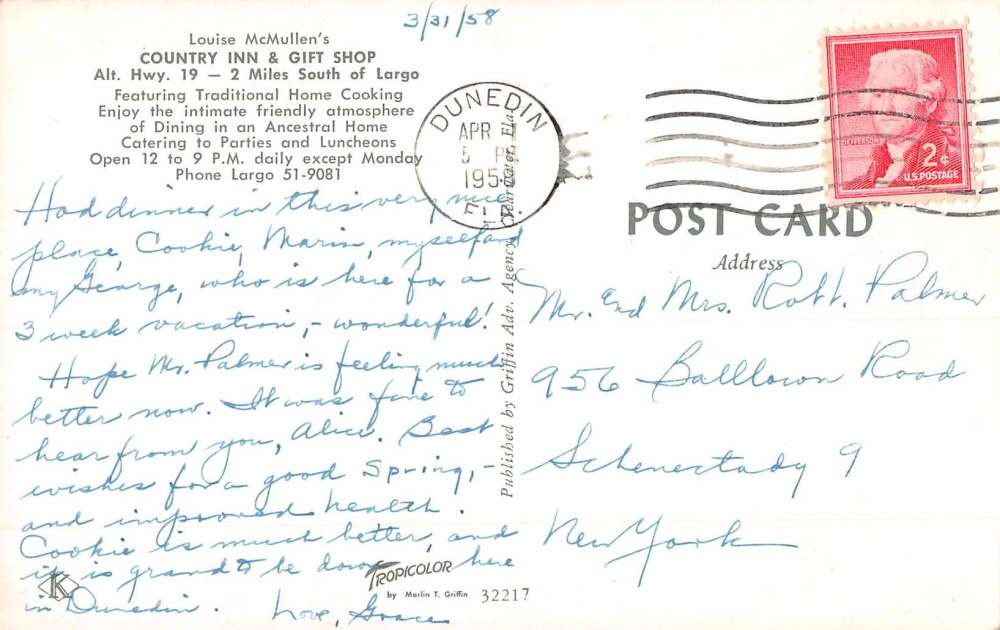 3/31/58
Louise McMullen's
COUNTRY INN & GIFT SHOP
Alt. Hwy. 19 — 2 Miles South of Largo
Featuring Traditional Home Cooking
Enjoy the intimate friendly atmosphere
of Dining in an Ancestral Home
Catering to Parties and Luncheons
Open 12 to 9 P.M. daily except Monday
Phone Largo 51-9081
Had dinner in this very nice
place, Cookie, Marin, myself and
my George, who is here for a
3 week vacation, - wonderful!
Hope Mr. Palmer is feeling much
better now. It was fine to
hear from you, Alice. Best
wishes for a good Spring, -
and improved health.
Cookie is much better, and
it is grand to be down here
in Dunedin. Love, Grace
K
TROPICOLOR
by Marlin T. Griffin
32217
Published by Griffin Adv. Agency, Clearwater, Fla.
DUNEDIN
APR
5 P
195
FL
JEFFERSON
2¢
U.S. POSTAGE
POST CARD
Address
Mr. and Mrs. Robt. Palmer
956 Balltown Road
Schenectady 9
New York